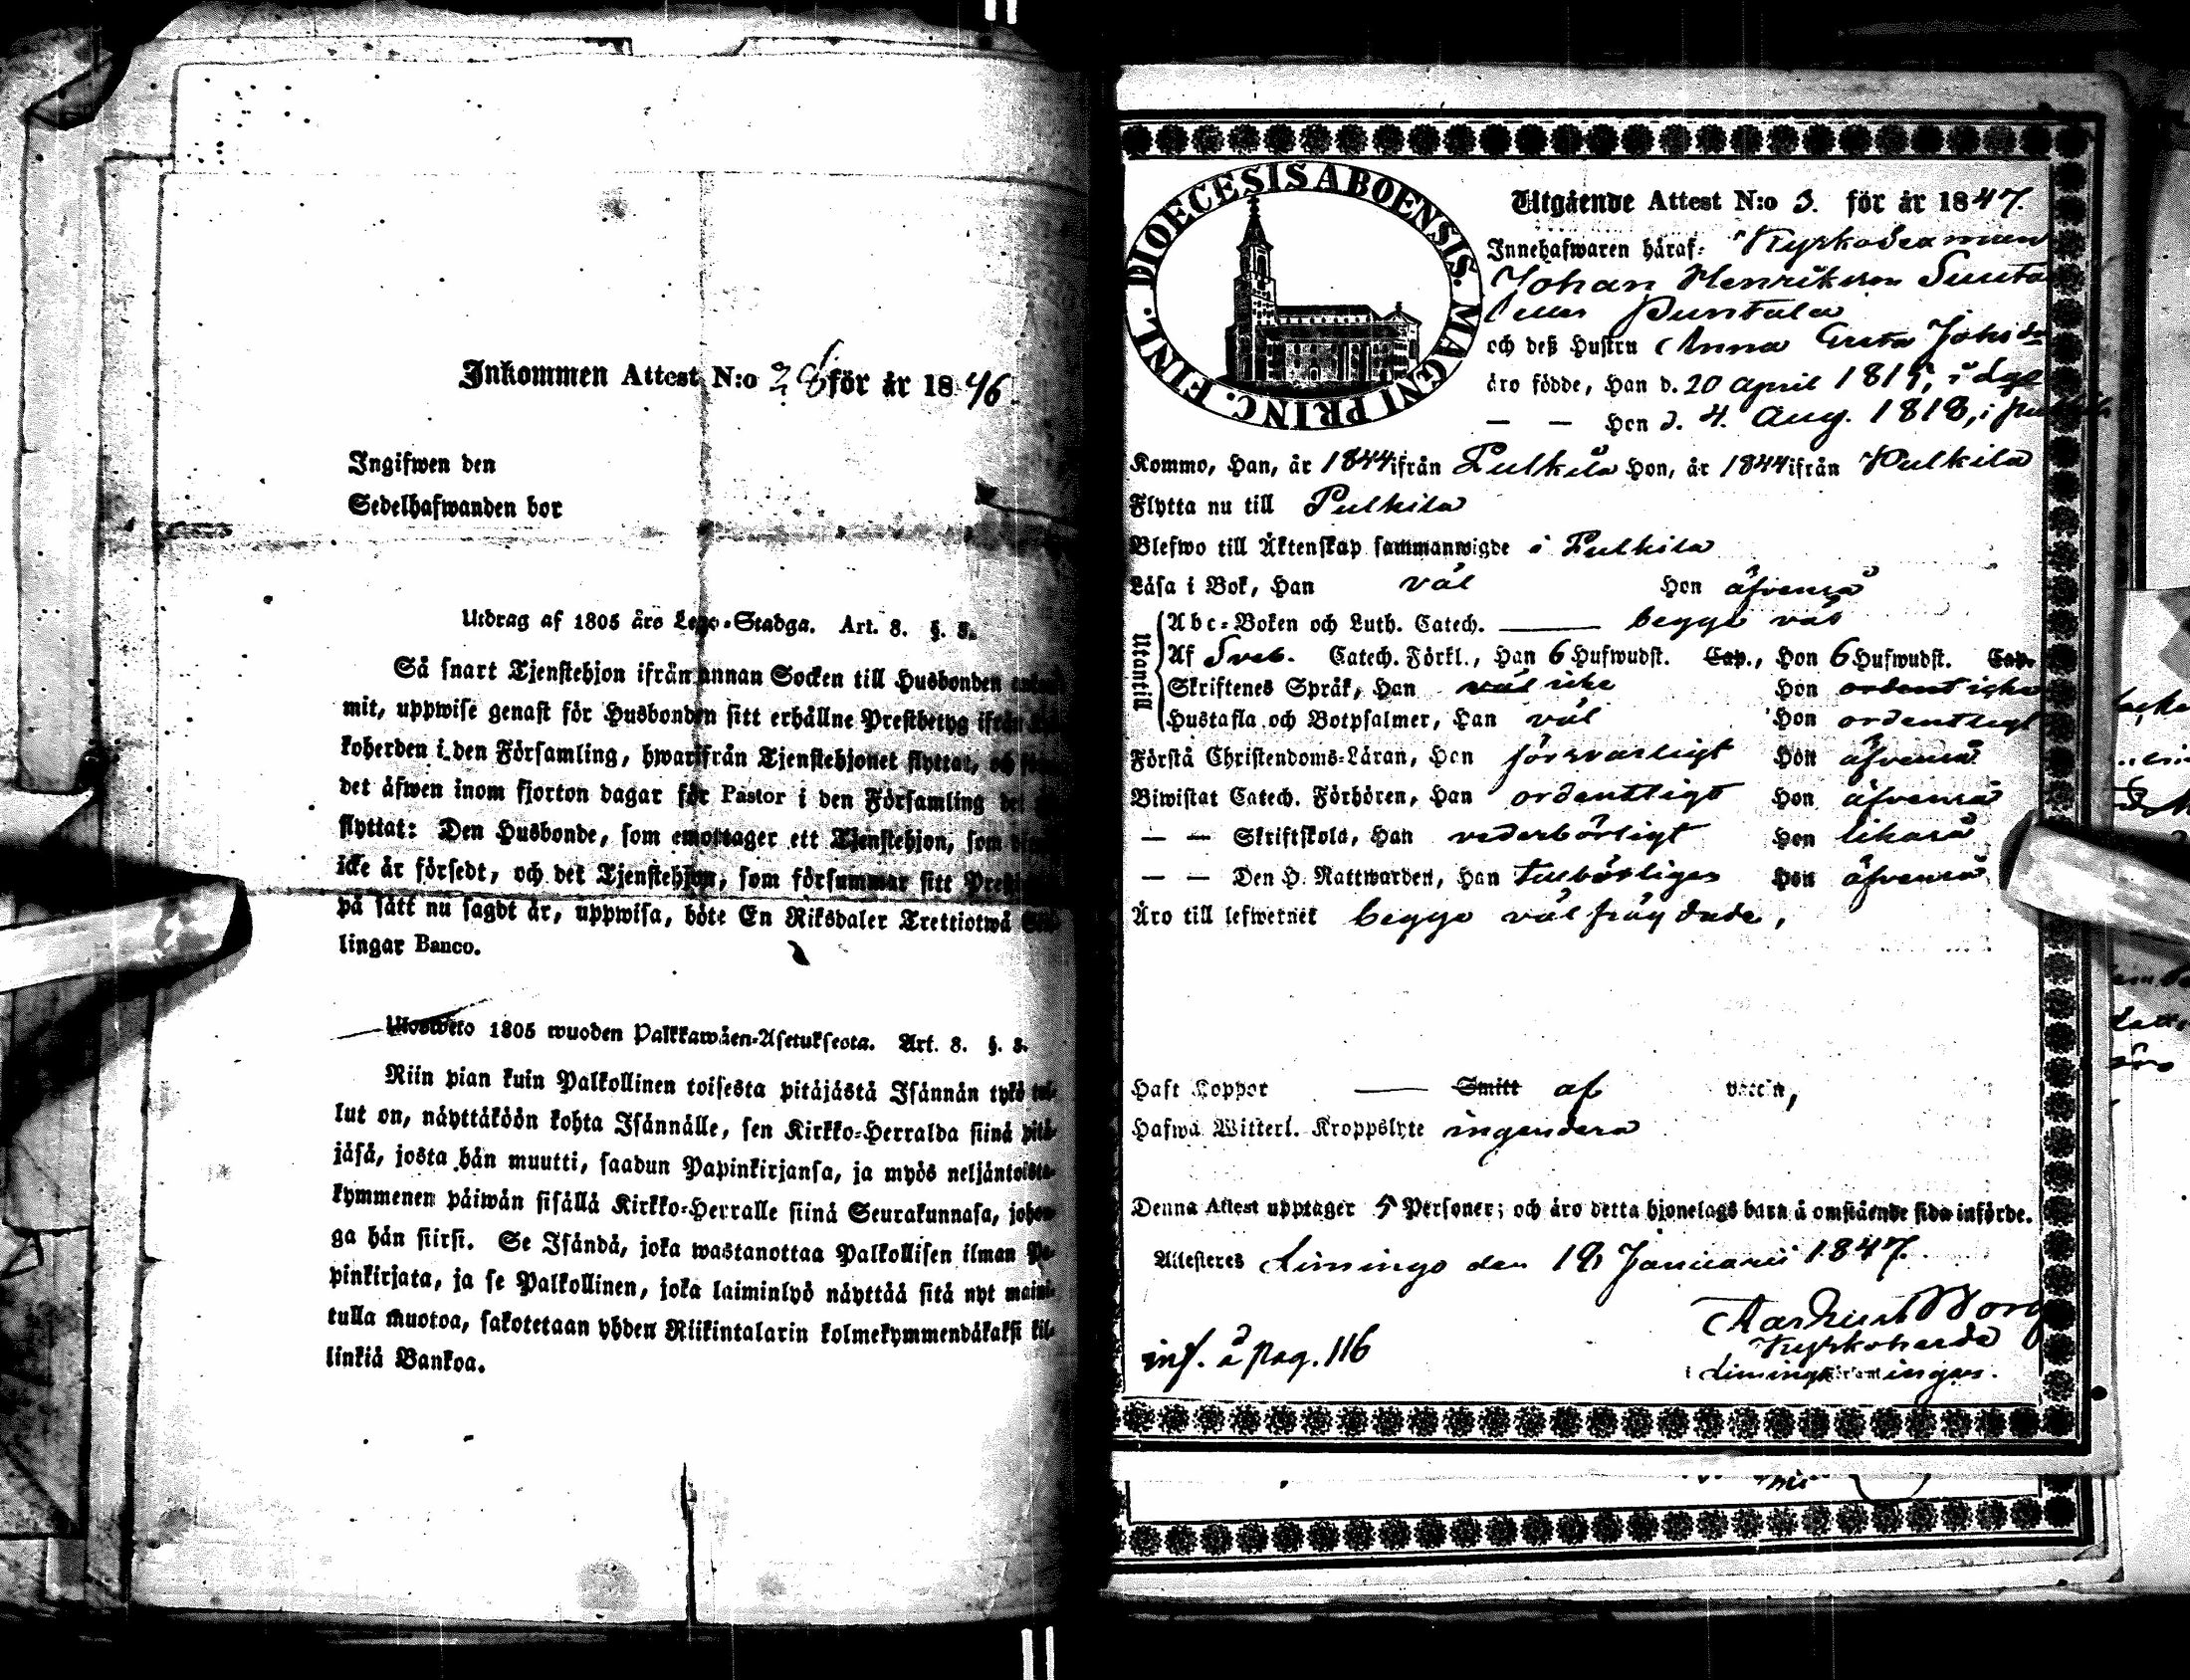 Inkommen Attest N:o 28 för år 1846.
Ingifwen den
Sedelhafwanden bor
Utdrag af 1805 års Lego-Stadga. Art. 8. §. 8.
Så snart Tjenstehjon ifrån annan Socken till Husbonden
mit, uppwise genast för Husbonden sitt erhållne Prestbetyg ifrån
koherden i den Församling, hwarifrån Tjenstehjonet flyttat, och
det äfwen inom fjorton dagar för Pastor i den Församling
flyttat: Den Husbonde, som emottager ett Tjenstehjon, som
icke är försedt, och det Tjenstehjon, som försummar sitt
på sätt nu sagdt är, uppwisa, böte En Riksdaler Trettiotwå
lingar Banco.
Ulosweto 1805 wuoden Palkkawäen-Asetuksesta. Art. 8. §. 8.
Niin pian kuin Palkollinen toisesta pitäjästä Isännän tykö tul-
lut on, näyttäköön kohta Isännälle, sen Kirkko-Herralda siinä pitä-
jäsä, josta hän muutti, saadun Papinkirjansa, ja myös neljäntoista-
kymmenen päiwän sisällä Kirkko-Herralle siinä Seurakunnasa, johon-
ga hän siirsi. Se Isändä, joka wastanottaa Palkollisen ilman Pa-
pinkirjata, ja se Palkollinen, joka laiminlyö näyttää sitä nyt maini-
tulla muotoa, sakotetaan yhden Riikintalarin kolmekymmendäkaksi kil-
linkiä Bankoa.
FINL. DIOECESIS ABOENSIS. MAGNI PRINC.
Utgående Attest N:o 3. för år 1847.
Innehafwaren häraf:
Johan Henrikson
eller Puntala
och deß Hustru Anna Greta Johsdr
äro födde, Han d. 20 april 181
— — Hon d. 4. Aug. 1818, i
Kommo, Han, år 1844 ifrån Pulkila Hon, år 1844 ifrån Pulkila
Flytta nu till Pulkila
Blefwo till Äktenskap sammanwigde i Pulkila
Läsa i Bok, Han väl Hon äfvenså
Utantill
Abc-Boken och Luth. Catech. — begge väl
Af Sveb. Catech. Förkl., Han 6 Hufwudst. Cap., Hon 6 Hufwudst. Cap.
Skriftenes Språk, Han Hon
Hustafla och Botpsalmer, Han väl Hon ordentligt
Förstå Christendoms-Läran, Han försvarligt Hon äfvenså
Biwistat Catech. Förhören, Han ordentligt Hon äfvenså
— — Skriftskola, Han vederbörligt Hon likaså
— — Den H. Nattwarden, Han tillbörligen Hon äfvenså
Äro till lefwernet begge välfrägdade,
Haft Koppor — Smitt af vaccin,
Hafwa Witterl. Kroppslyte ingendera
Denna Attest upptager 5 Personer; och äro detta hjonelags barn å omstående sida införde.
Attesteres Limingo den 19 Januarii 1847.
Kyrkoherde
i Limingo församlingar.
inf. å pag. 116